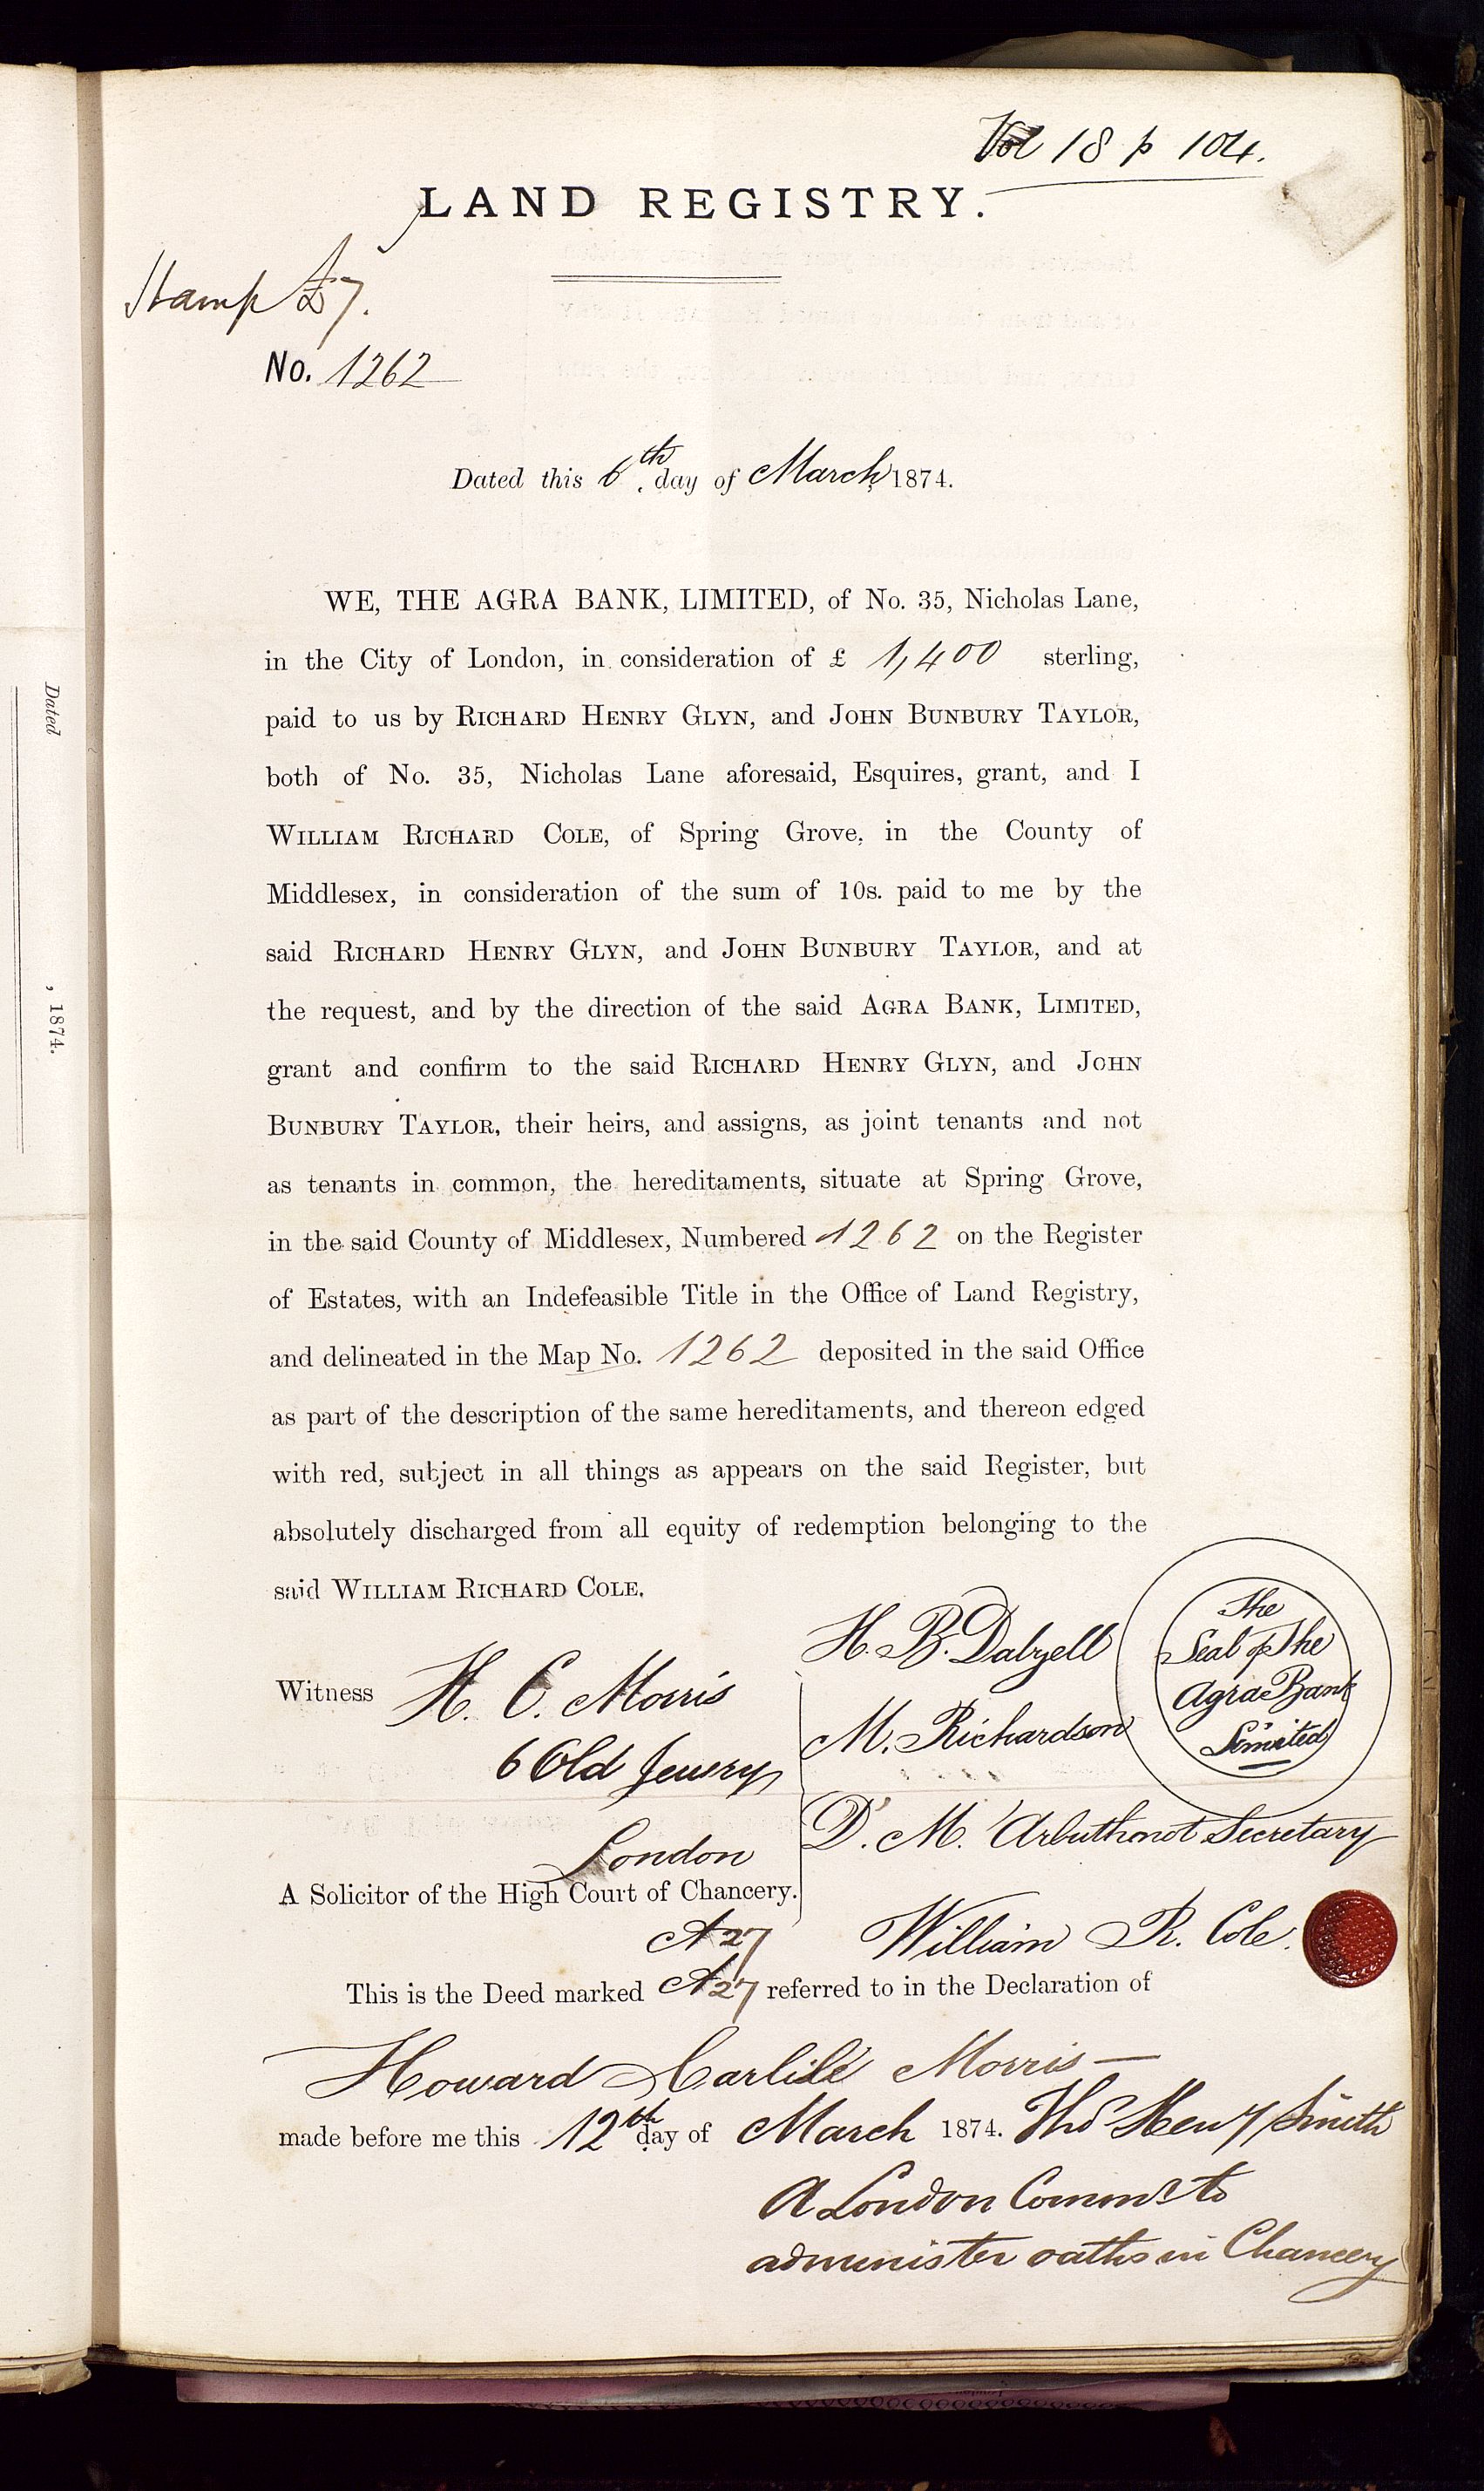 Vol 18 p 104.
LAND REGISTRY.
Stamp £7.
No. 1262
Dated this 6th day of March 1874.
WE, THE AGRA BANK, LIMITED, of No. 35, Nicholas Lane,
in the City of London, in consideration of £ 1,400 sterling,
paid to us by RICHARD HENRY GLYN, and JOHN BUNBURY TAYLOR,
both of No. 35, Nicholas Lane aforesaid, Esquires, grant, and I
WILLIAM RICHARD COLE, of Spring Grove, in the County of
Middlesex, in consideration of the sum of 10s. paid to me by the
said RICHARD HENRY GLYN, and JOHN BUNBURY TAYLOR, and at
the request, and by the direction of the said AGRA BANK, LIMITED,
grant and confirm to the said RICHARD HENRY GLYN, and JOHN
BUNBURY TAYLOR, their heirs, and assigns, as joint tenants and not
as tenants in common, the hereditaments, situate at Spring Grove,
in the said County of Middlesex, Numbered 1262 on the Register
of Estates, with an Indefeasible Title in the Office of Land Registry,
and delineated in the Map No. 1262 deposited in the said Office
as part of the description of the same hereditaments, and thereon edged
with red, subject in all things as appears on the said Register, but
absolutely discharged from all equity of redemption belonging to the
said WILLIAM RICHARD COLE.
H. B. Dalzell
The
Seal of The
Agra Bank
Limited
Witness H. C. Morris
M. Richardson
6 Old Jewry
D. M. Arbuthnot Secretary
London
A Solicitor of the High Court of Chancery.
A 27
William R. Cole.
This is the Deed marked A 27 referred to in the Declaration of
Howard Carlile Morris
made before me this 12th day of March 1874. Thos Henry Smith
A London Commr to
administer oaths in Chancery
Dated
, 1874.